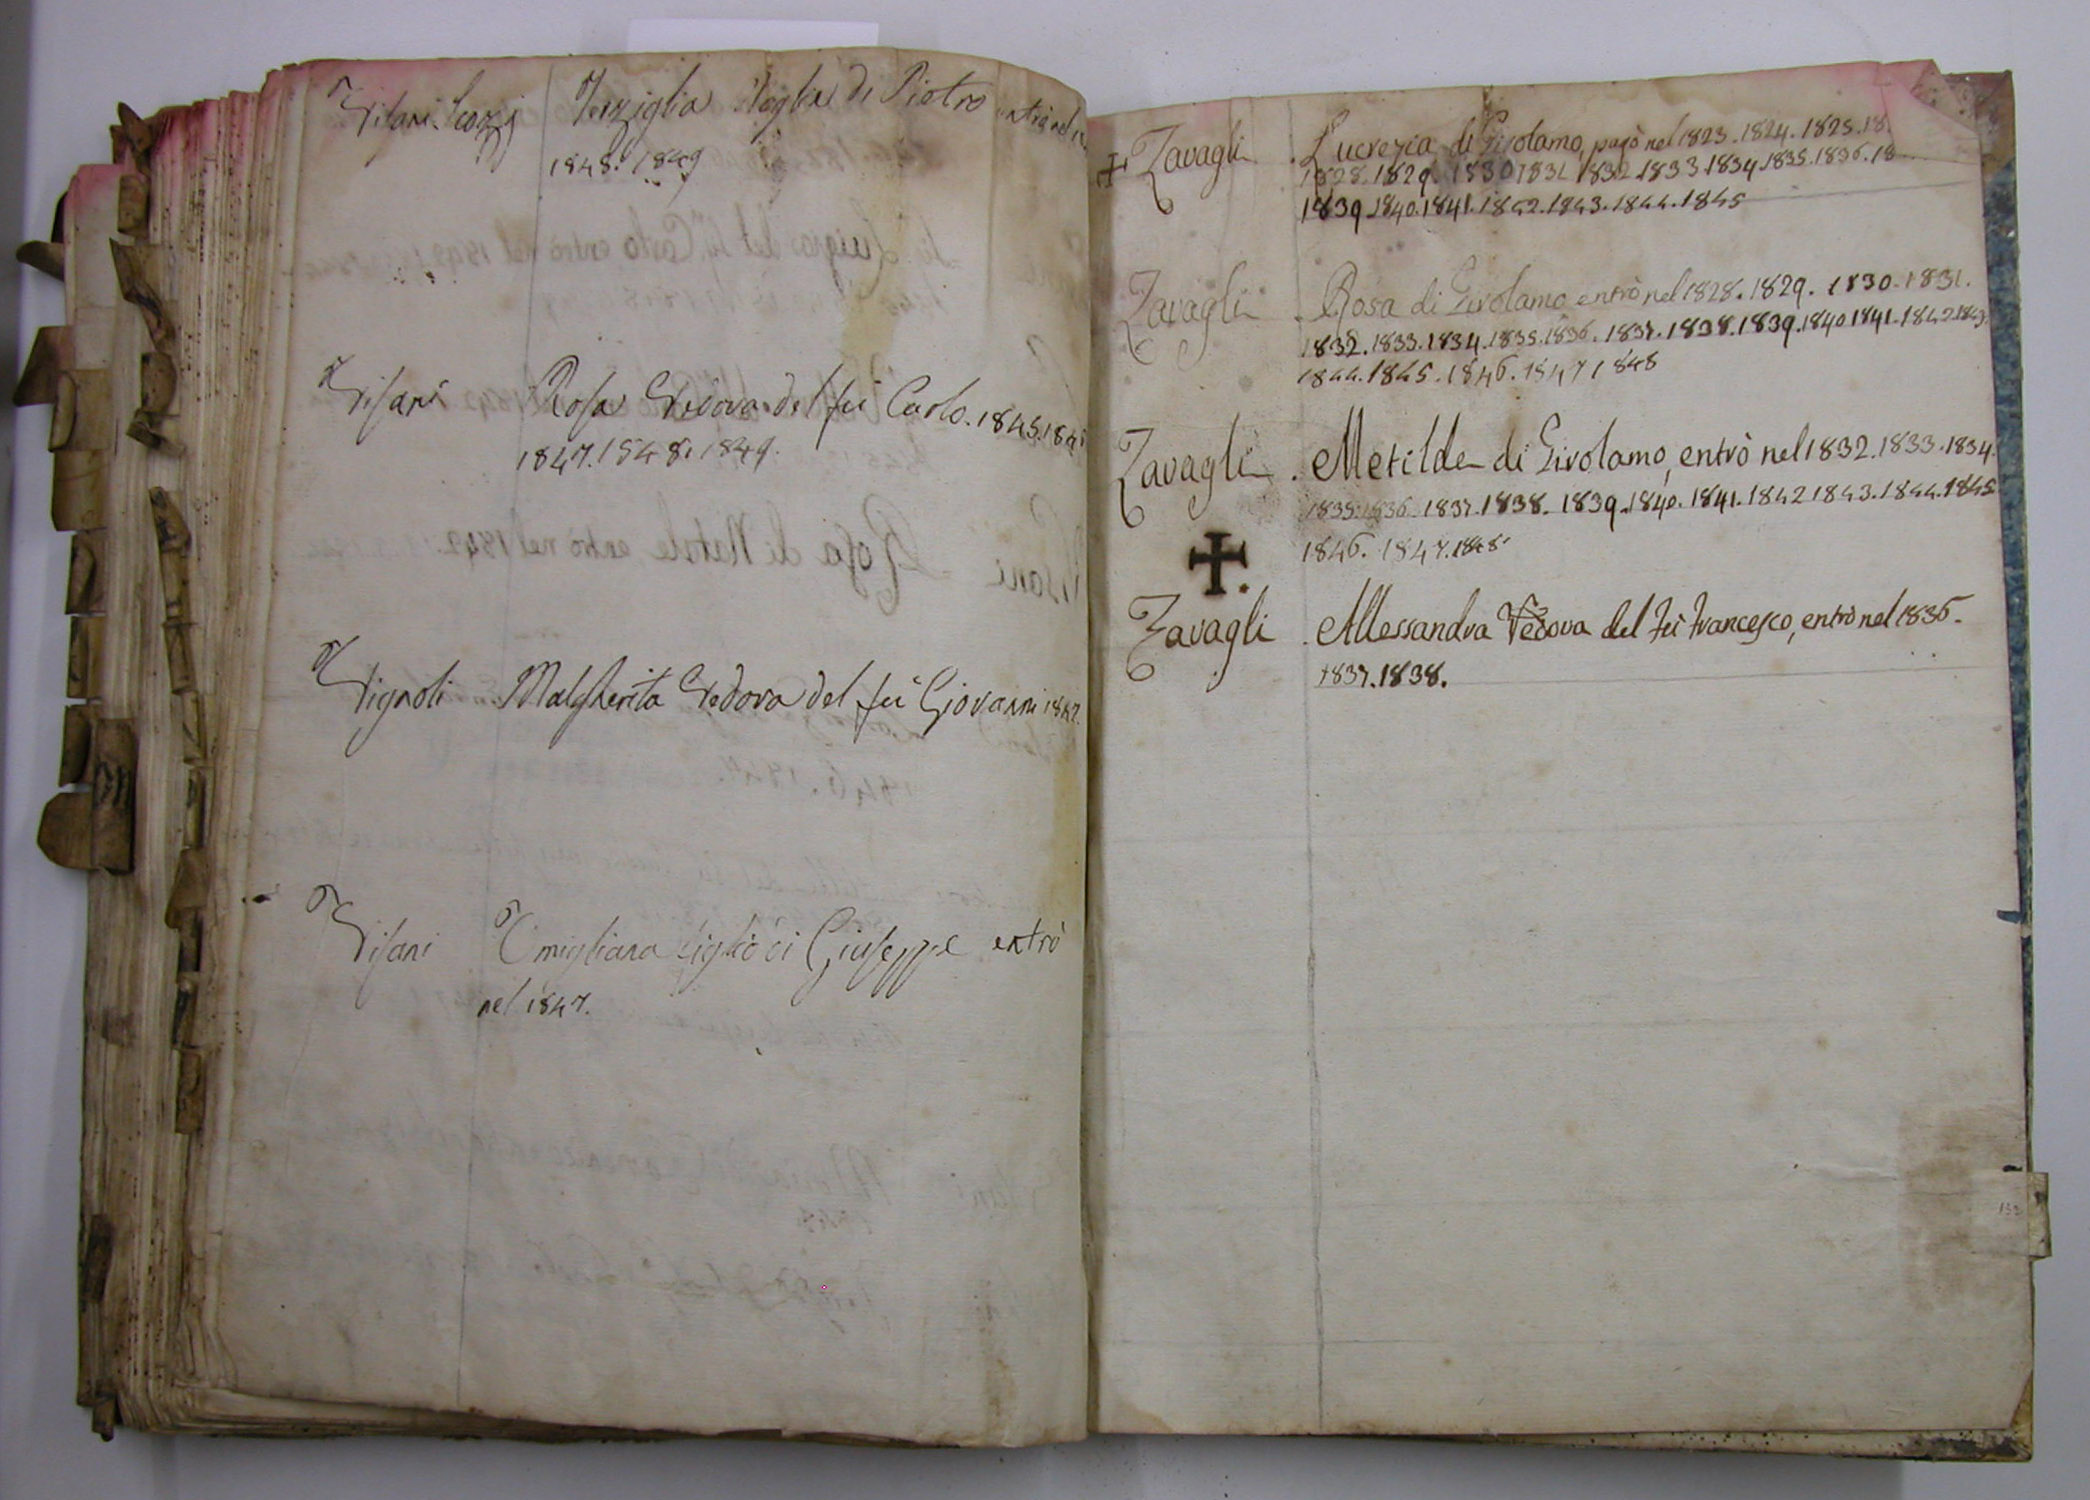 Visani Cozzj Verziglia Moglie di Pietro entrò nel
1848. 1849
Visani Rosa Vedova del fu Carlo. 1845. 184
1847. 1848. 1849.
Vignoli Malgherita Vedova del fu Giovanni 1847.
Visani Emigliana figlia di Giuseppe entrò
nel 1847.
Zavagli . Lucrezia di Girolamo, pagò nel 1823. 1824. 1825. 18
1828. 1829. 1830 1831 1832. 1833. 1834. 1835. 1836. 18
1839. 1840. 1841. 1842. 1843. 1844. 1845
Zavagli . Rosa di Girolamo entrò nel 1828. 1829. 1830. 1831.
1832. 1833. 1834. 1835. 1836. 1837. 1838. 1839. 1840. 1841. 1842. 1843.
1844. 1845. 1846. 1847 1848
Zavagli . Metilde di Girolamo, entrò nel 1832. 1833. 1834.
1835. 1836. 1837. 1838. 1839. 1840. 1841. 1842 1843. 1844. 1845
1846. 1847. 1848
Zavagli . Allessandra Vedova del fù Francesco, entrò nel 1836.
1837. 1838.